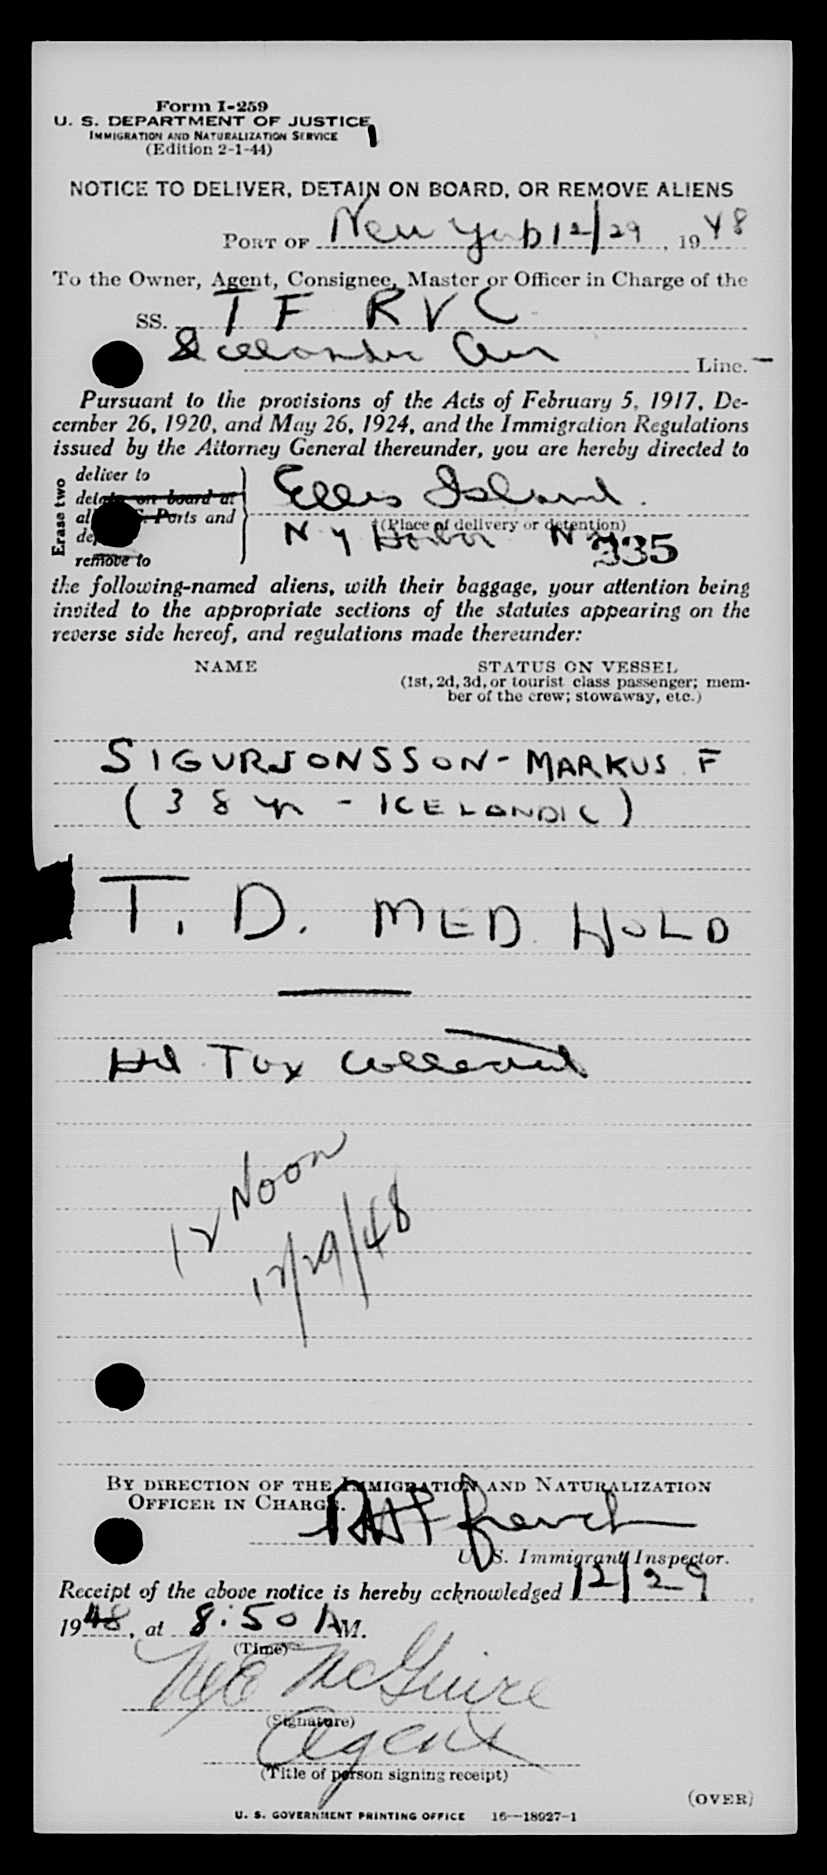 Form I-259
U. S. DEPARTMENT OF JUSTICE
IMMIGRATION AND NATURALIZATION SERVICE
(Edition 2-1-44)
NOTICE TO DELIVER, DETAIN ON BOARD, OR REMOVE ALIENS
PORT OF New York 12/29, 1948
To the Owner, Agent, Consignee, Master or Officer in Charge of the
SS. TF RVC
Icelandic Air Line.
Pursuant to the provisions of the Acts of February 5, 1917, De-
cember 26, 1920, and May 26, 1924, and the Immigration Regulations
issued by the Attorney General thereunder, you are hereby directed to
Erase two
deliver to
detain on board at
all U. S. Ports and
remove to
Ellis Island.
(Place of delivery or detention)
N Y Harbor N Y
335
the following-named aliens, with their baggage, your attention being
invited to the appropriate sections of the statutes appearing on the
reverse side hereof, and regulations made thereunder:
NAME STATUS ON VESSEL
(1st, 2d, 3d, or tourist class passenger; mem-
ber of the crew; stowaway, etc.)
SIGURJONSSON - MARKUS F
(38 yr - ICELANDIC)
T. D. MED. HOLD
Hd Tax Collected
12 Noon
12/29/48
BY DIRECTION OF THE IMMIGRATION AND NATURALIZATION
OFFICER IN CHARGE.
French
U. S. Immigrant Inspector.
Receipt of the above notice is hereby acknowledged 12/29,
1948, at 8:50 AM.
(Time)
McGuire
(Signature)
Agent
(Title of person signing receipt)
(OVER)
U. S. GOVERNMENT PRINTING OFFICE 16—18927-1